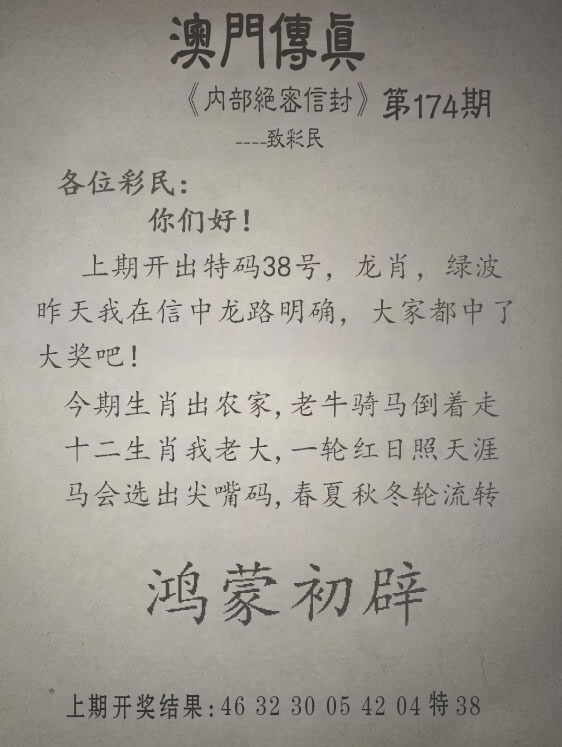 澳門傳真
《内部絕密信封》第174期
----致彩民
各位彩民:
你们好!
上期开出特码38号，龙肖，绿波
昨天我在信中龙路明确，大家都中了
大奖吧!
今期生肖出农家,老牛骑马倒着走
十二生肖我老大,一轮红日照天涯
马会选出尖嘴码,春夏秋冬轮流转
鸿蒙初辟
上期开奖结果:46 32 30 05 42 04 特 38